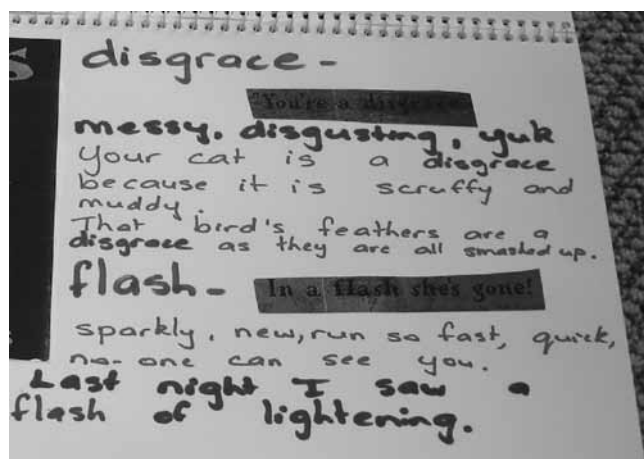 disgrace -
"You're a disgrace
messy, disgusting, yuk
Your cat is a disgrace
because it is scruffy and
muddy.
That bird's feathers are a
disgrace as they are all smashed up.
flash -
In a flash she's gone!
sparkly, new, run so fast, quick,
no-one can see you.
Last night I saw a
flash of lightening.